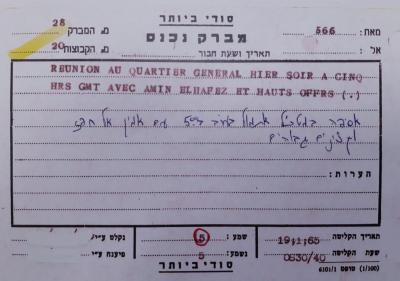 סודי ביותר
מברק נכנס
מאת: 566
מס המברק 28
אל:
תאריך ושעת חבור
מס הקבוצות 20
REUNION AU QUARTIER GENERAL HIER SOIR A CINQ
HRS GMT AVEC AMIN ELHAFEZ ET HAUTS OFFRS (.)
אספה במטכ"ל אתמול בערב ב-5 עם אמין אל חפז
וקצינים גבוהים
הערות:
תאריך הקליטה 19/1/65
שמע: 5
נקלט ע"י
שעת הקליטה 0830/40
נשמע: 5
פיענח ע"י
סודי ביותר
(1/100) טופס 6101/1